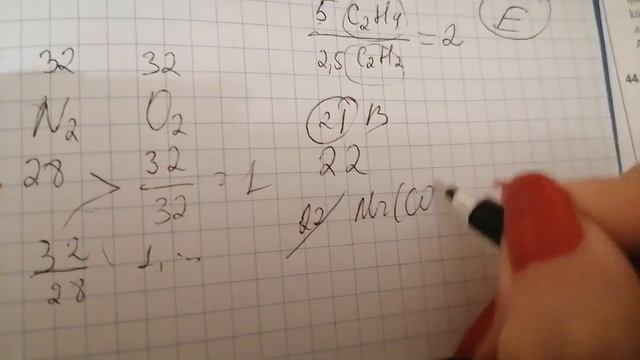 5 (C₂H₄) / 2,5 (C₂H₂) = 2
E
32 32
N₂ O₂
28 > 32/32 = 1
32/28 1, ...
21 B
22
22/ Mr(CO
44